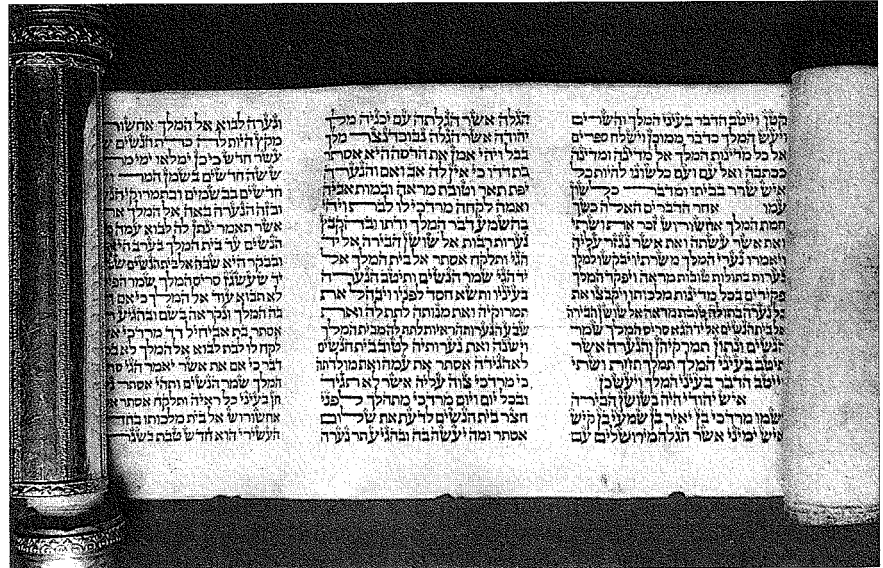 קטן וייטב הדבר בעיני המלך והשרים
ויעש המלך כדבר ממוכן וישלח ספרים
אל כל מדינות המלך אל מדינה ומדינה
ככתבה ואל עם ועם כלשונו להיות כל
איש שרר בביתו ומדבר כלשון
עמו אחר הדברים האלה כשך
חמת המלך אחשורוש זכר את ושתי
ואת אשר עשתה ואת אשר נגזר עליה
ויאמרו נערי המלך משרתיו יבקשו למלך
נערות בתולות טובות מראה ויפקד המלך
פקידים בכל מדינות מלכותו ויקבצו את
כל נערה בתולה טובת מראה אל שושן הבירה
אל בית הנשים אל יד הגא סריס המלך שמר
הנשים ונתון תמרקיהן והנערה אשר
תיטב בעיני המלך תמלך תחת ושתי
וייטב הדבר בעיני המלך ויעש כן
איש יהודי היה בשושן הבירה
ושמו מרדכי בן יאיר בן שמעי בן קיש
איש ימיני אשר הגלה מירושלים עם
הגלה אשר הגלתה עם יכניה מלך
יהודה אשר הגלה נבוכדנצר מלך
בבל ויהי אמן את הדסה היא אסתר
בת דדו כי אין לה אב ואם והנערה
יפת תאר וטובת מראה ובמות אביה
ואמה לקחה מרדכי לו לבת ויהי
בהשמע דבר המלך ודתו ובהקבץ
נערות רבות אל שושן הבירה אל יד
הגי ותלקח אסתר אל בית המלך אל
יד הגי שמר הנשים ותיטב הנערה
בעיניו ותשא חסד לפניו ויבהל את
תמרוקיה ואת מנותה לתת לה ואת
שבע הנערות הראיות לתת לה מבית המלך
וישנה ואת נערותיה לטוב בית הנשים
לא הגידה אסתר את עמה ואת מולדתה
כי מרדכי צוה עליה אשר לא תגיד
ובכל יום ויום מרדכי מתהלך לפני
חצר בית הנשים לדעת את שלום
אסתר ומה יעשה בה ובהגיע תר נערה
ונערה לבוא אל המלך אחשורוש
מקץ היות לה כדת הנשים
עשר חדש כי כן ימלאו ימי
ששה חדשים בשמן המר
חדשים בבשמים ובתמרוקי
ובזה הנערה באה אל המלך
אשר תאמר ינתן לה לבוא עמה
הנשים עד בית המלך בערב היא
ובבקר היא שבה אל בית הנשים
יד שעשגז סריס המלך שמר
לא תבוא עוד אל המלך כי אם
בה המלך ונקראה בשם ובהגיע
אסתר בת אביחיל דד מרדכי
לקח לו לבת לבוא אל המלך לא
דבר כי אם את אשר יאמר הגי
המלך שמר הנשים ותהי אסתר
חן בעיני כל ראיה ותלקח אסתר
אחשורוש אל בית מלכותו בחדש
העשירי הוא חדש טבת בשנת